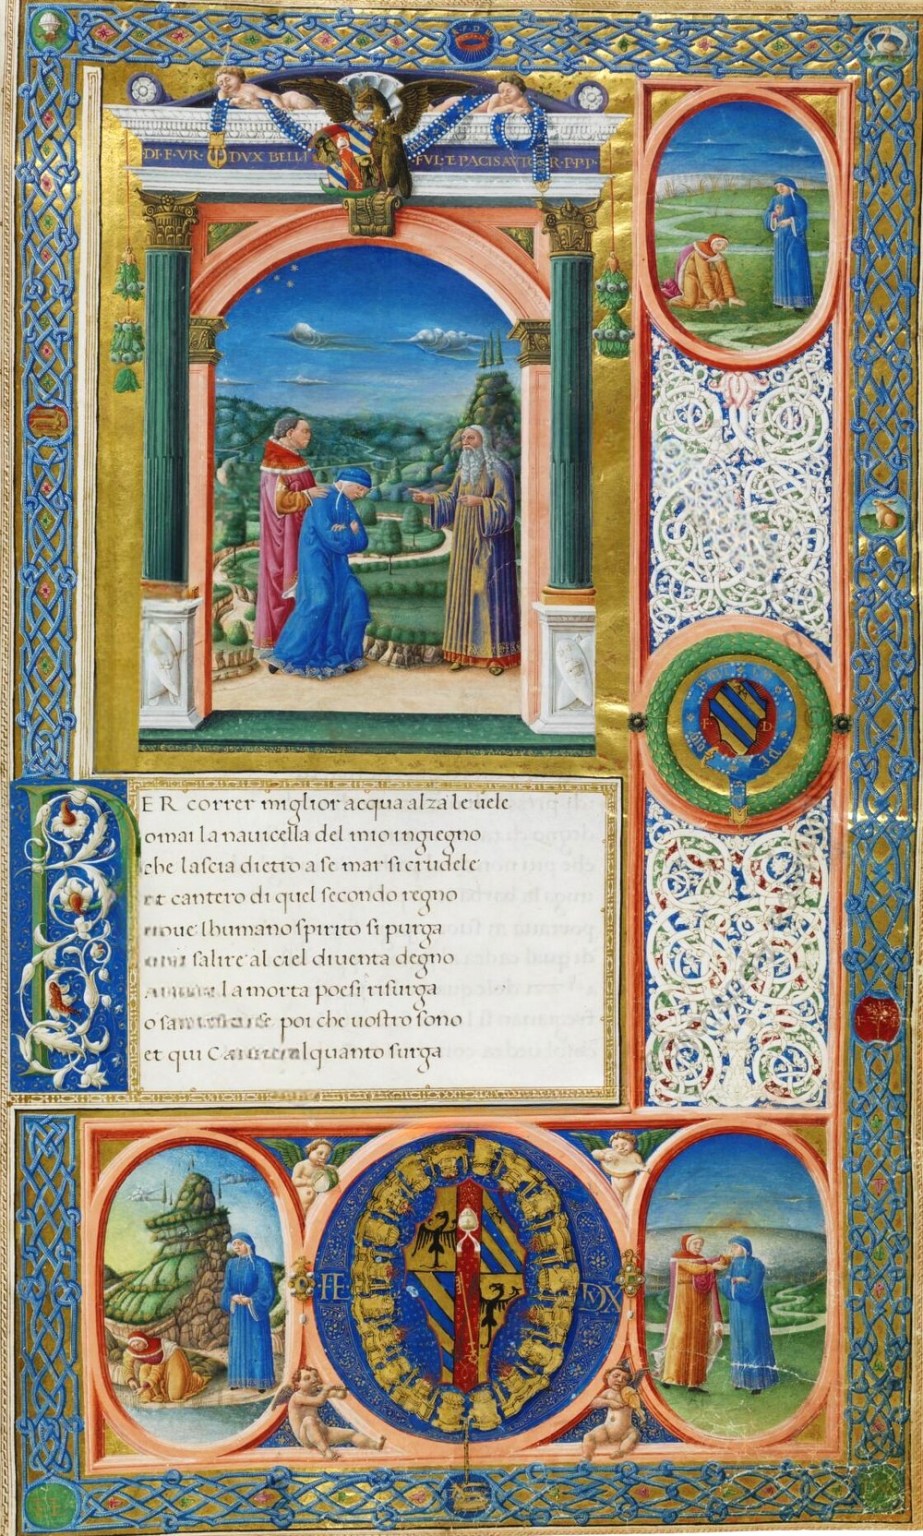 DI·F·VR· DVX BELLI FVL·E PACIS
PER correr miglior acqua alza le uele
omai la nauicella del mio ingiegno
che lascia dietro a se mar si crudele
et cantero di quel secondo regno
doue lhumano spirito si purga
salire al ciel diuenta degno
la morta poesi risurga
o poi che uostro sono
et qui alquanto surga
F D
FE DVX